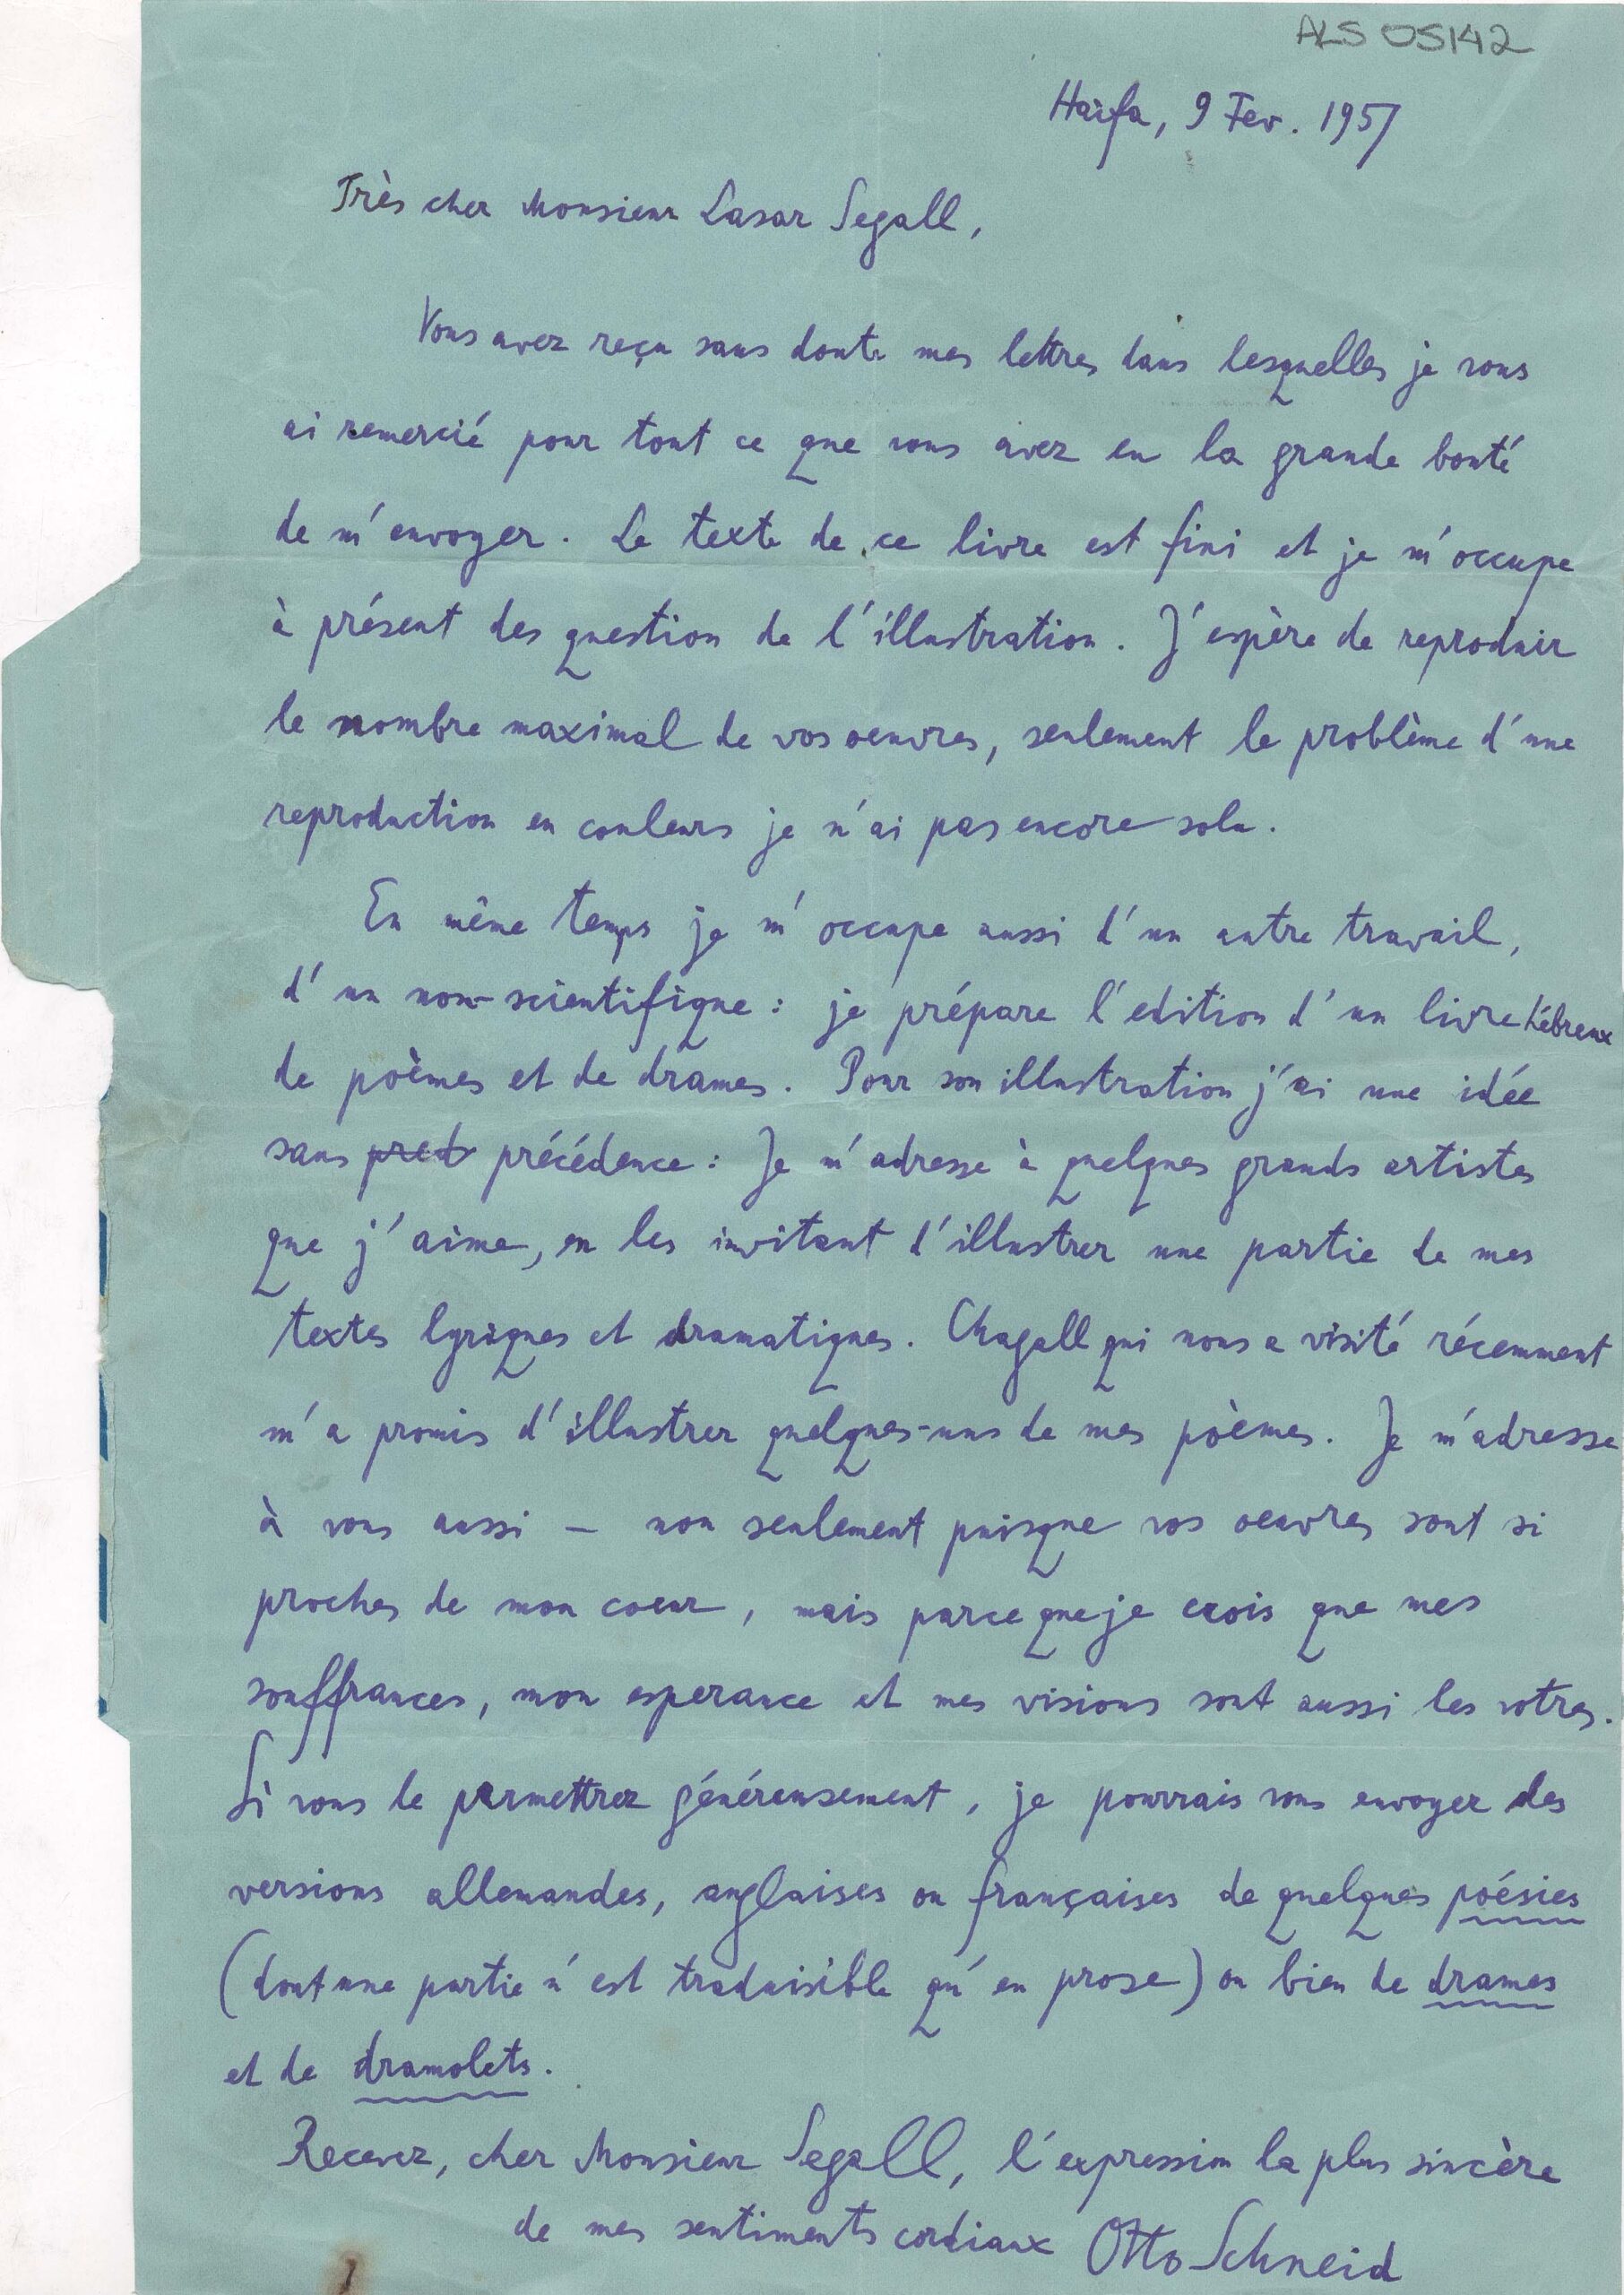 ALS 05142
Haïfa, 9 Fev. 1957
Très cher Monsieur Lasar Segall,
Vous avez reçu sans doute mes lettres dans lesquelles je vous
ai remercié pour tout ce que vous avez eu la grande bonté
de m'envoyer. Le texte de ce livre est fini et je m'occupe
à présent des question de l'illustration. J'espère de reproduir
le nombre maximal de vos oeuvres, seulement le problème d'une
reproduction en couleurs je n'ai pas encore solu.
En même temps je m'occupe aussi d'un autre travail,
d'un non-scientifique: je prépare l'edition d'un livre hébreux
de poèmes et de drames. Pour son illustration j'ai une idée
sans pred précédence: Je m'adresse à quelques grands artistes
que j'aime, en les invitant d'illustrer une partie de mes
textes lyriques et dramatiques. Chagall qui nous a visité récemment
m'a promis d'illustrer quelques-uns de mes pòèmes. Je m'adresse
à vous aussi – non seulement puisque vos oeuvres sont si
proches de mon coeur, mais parce que je crois que mes
souffrances, mon esperance et mes visions sont aussi les votres.
Si vous le permettrez généreusement, je pourrais vous envoyer des
versions allemandes, anglaises ou françaises de quelques poésies
(dont une partie n'est traduisible qu'en prose) ou bien de drames
et de dramolets.
Recevez, cher Monsieur Segall, l'expression la plus sincère
de mes sentiments cordiaux Otto Schneid